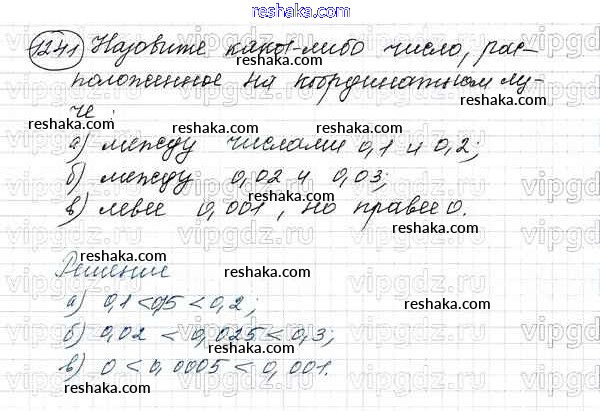 reshaka.com
1241 Назовите какое-либо число, рас-
положенное на координатном лу-
че:
reshaka.com reshaka.com reshaka.com
а) между числами 0,1 и 0,2;
reshaka.com
б) между 0,02 и 0,03;
reshaka.com
в) левее 0,001, но правее 0.
reshaka.com
Решение
reshaka.com
а) 0,1 < 0,15 < 0,2;
reshaka.com
б) 0,02 < 0,025 < 0,3;
reshaka.com
в) 0 < 0,0005 < 0,001.
reshaka.com
reshaka.com